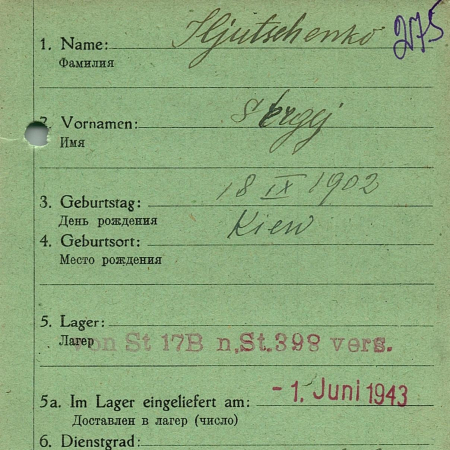 1. Name: Iljutschenko 275
Фамилия
2. Vornamen: Sergej
Имя
3. Geburtstag: 18 IX 1902
День рождения
4. Geburtsort: Kiew
Место рождения
5. Lager:
Лагер
von St 17B n. St. 398 vers.
5a. Im Lager eingeliefert am: - 1. Juni 1943
Доставлен в лагер (число)
6. Dienstgrad: